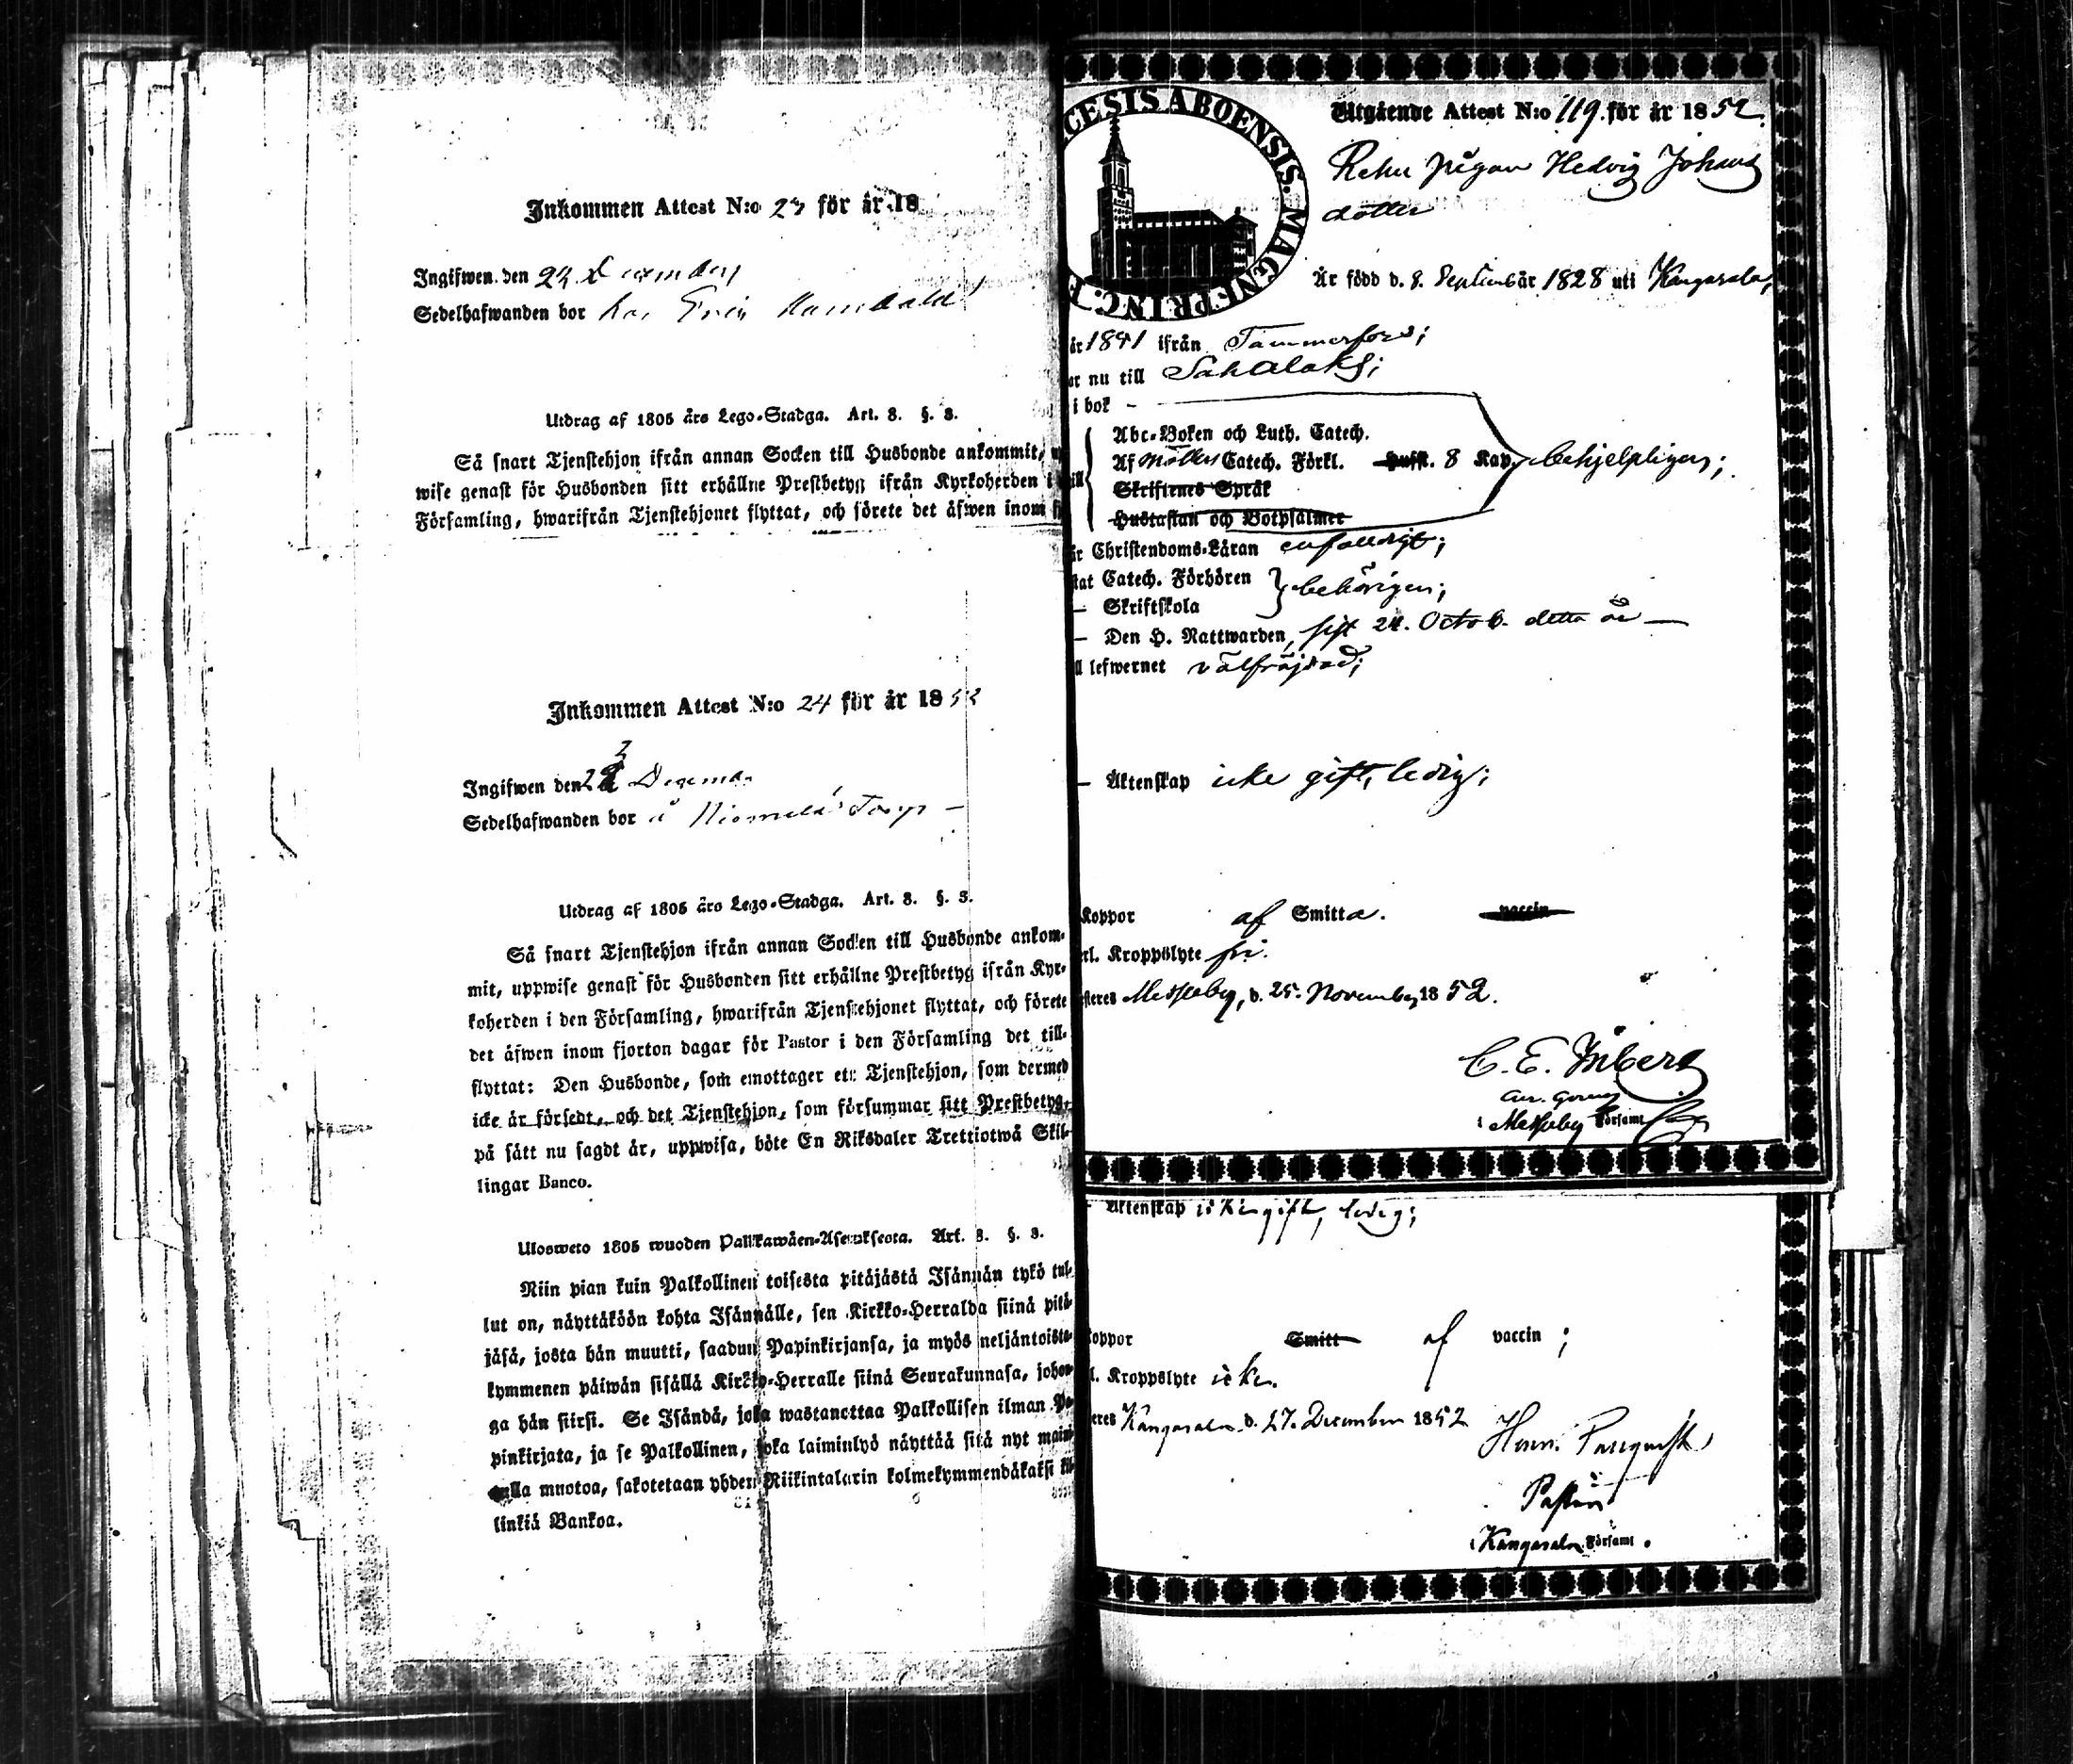 Inkommen Attest N:o 23 för år 18
Ingifwen den 23 December
Sedelhafwanden bor hos Eric
Utdrag af 1805 års Lego-Stadga. Art. 8. §. 3.
Så snart Tjenstehjon ifrån annan Socken till Husbonde ankommit,
wise genast för Husbonden sitt erhållne Prestbetyg ifrån Kyrkoherden i
Församling, hwarifrån Tjenstehjonet flyttat, och förete det äfwen inom
Inkommen Attest N:o 24 för år 1852
Ingifwen den Decemb.
Sedelhafwanden bor å Torp
Utdrag af 1805 års Lego-Stadga. Art. 8. §. 3.
Så snart Tjenstehjon ifrån annan Socken till Husbonde ankom-
mit, uppwise genast för Husbonden sitt erhållne Prestbetyg ifrån Kyr-
koherden i den Församling, hwarifrån Tjenstehjonet flyttat, och förete
det äfwen inom fjorton dagar för Pastor i den Församling det till-
flyttat: Den Husbonde, som emottager ett Tjenstehjon, som dermed
icke är försedt, och det Tjenstehjon, som försummar sitt Prestbetyg,
på sätt nu sagdt är, uppwisa, böte En Riksdaler Trettiotwå Skil-
lingar Banco.
Ulosweto 1805 wuoden Palkkawäen-Asetuksesta. Art. 8. §. 3.
Niin pian kuin Palkollinen toisesta pitäjästä Isännän tykö tul-
lut on, näyttäköön kohta Isännälle, sen Kirkko-Herralda siinä pitä-
jäsä, josta hän muutti, saadun Papinkirjansa, ja myös neljäntoista-
kymmenen päiwän sisällä Kirkko-Herralle siinä Seurakunnasa, johon-
ga hän siirsi. Se Isändä, joka wastanottaa Palkollisen ilman Pa-
pinkirjata, ja se Palkollinen, joka laiminlyö näyttää sitä nyt maini-
tulla muotoa, sakotetaan yhden Riikintalarin kolmekymmendäkaksi kil-
linkiä Bankoa.
CESIS ABOENSIS. MAGNI PRINC. F
Utgående Attest N:o 119 för år 1852.
Pigan Hedvig Johans
dotter
Är född d. 8. September år 1828 uti Kangasala,
år 1841 ifrån Tammerfors;
nu till Sahalaks;
i bok –
Abc-Boken och Luth. Catech.
Af Möllers Catech. Förkl. Husk. 8 Kap. behjelpligen;
Skriftenes Språk
Hustaflan och Botpsalmer
Christendoms-Läran enfaldigt;
Catech. Förhören } behörigen;
– Skriftskola
– Den H. Nattwarden, sist 24. Octob. detta år —
lefwernet välfräjdad;
– Äktenskap icke gift, ledig;
Koppor af Smitta. vaccin
Kroppslyte fri.
Messuby, d. 25. November 1852.
C. E.
i Messuby Församl.
– Äktenskap icke gift, ledig;
Koppor Smitt af vaccin ;
Kroppslyte icke.
Kangasala d. 27. December 1852
Henr.
Pastor
i Kangasala Församl.